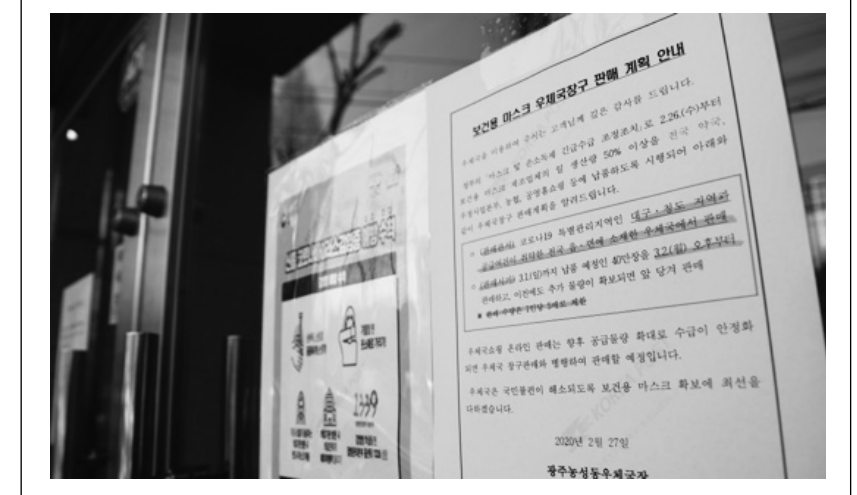 보건용 마스크 우체국창구 판매 계획 안내
우체국을 이용하여 주시는 고객님께 깊은 감사를 드립니다.
정부의 「마스크 및 손소독제 긴급수급 조정조치」로 2.26.(수)부터
보건용 마스크 제조업체의 일 생산량 50% 이상을 전국 약국,
우정사업본부, 농협, 공영홈쇼핑 등에 납품하도록 시행되어 아래와
같이 우체국창구 판매계획을 알려드립니다.
○ (판매관서) 코로나19 특별관리지역인 대구·청도 지역과
공급여건이 취약한 전국 읍·면에 소재한 우체국에서 판매
○ (판매시기) 3.1(일)까지 납품 예정인 40만장을 3.2.(월) 오후부터
판매하고, 이전에도 추가 물량이 확보되면 앞 당겨 판매
■ 판매 수량은 1인당 5매로 제한
우체국쇼핑 온라인 판매는 향후 공급물량 확대로 수급이 안정화
되면 우체국 창구판매와 병행하여 판매할 예정입니다.
우체국은 국민불편이 해소되도록 보건용 마스크 확보에 최선을
다하겠습니다.
2020년 2월 27일
광주농성동우체국장
1339